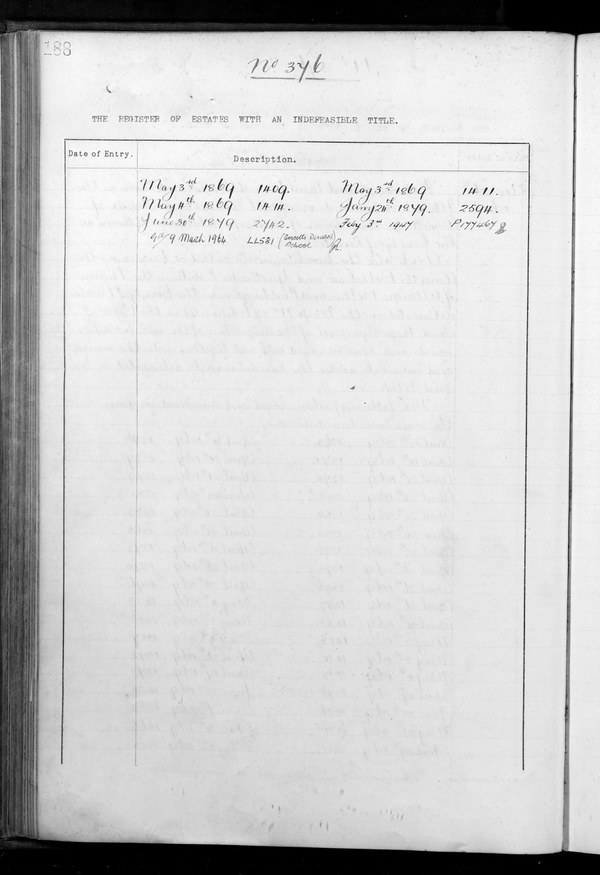 188
No 376
THE REGISTER OF ESTATES WITH AN INDEFEASIBLE TITLE.
Date of Entry. Description.
May 3rd 1869 1409. May 3rd 1869 1411.
May 4th 1869 1414. Jany 24th 1879. 2594.
June 30th 1879 2742. Feby 3rd 1947 P177467
9 March 1964 LL531 ( School )